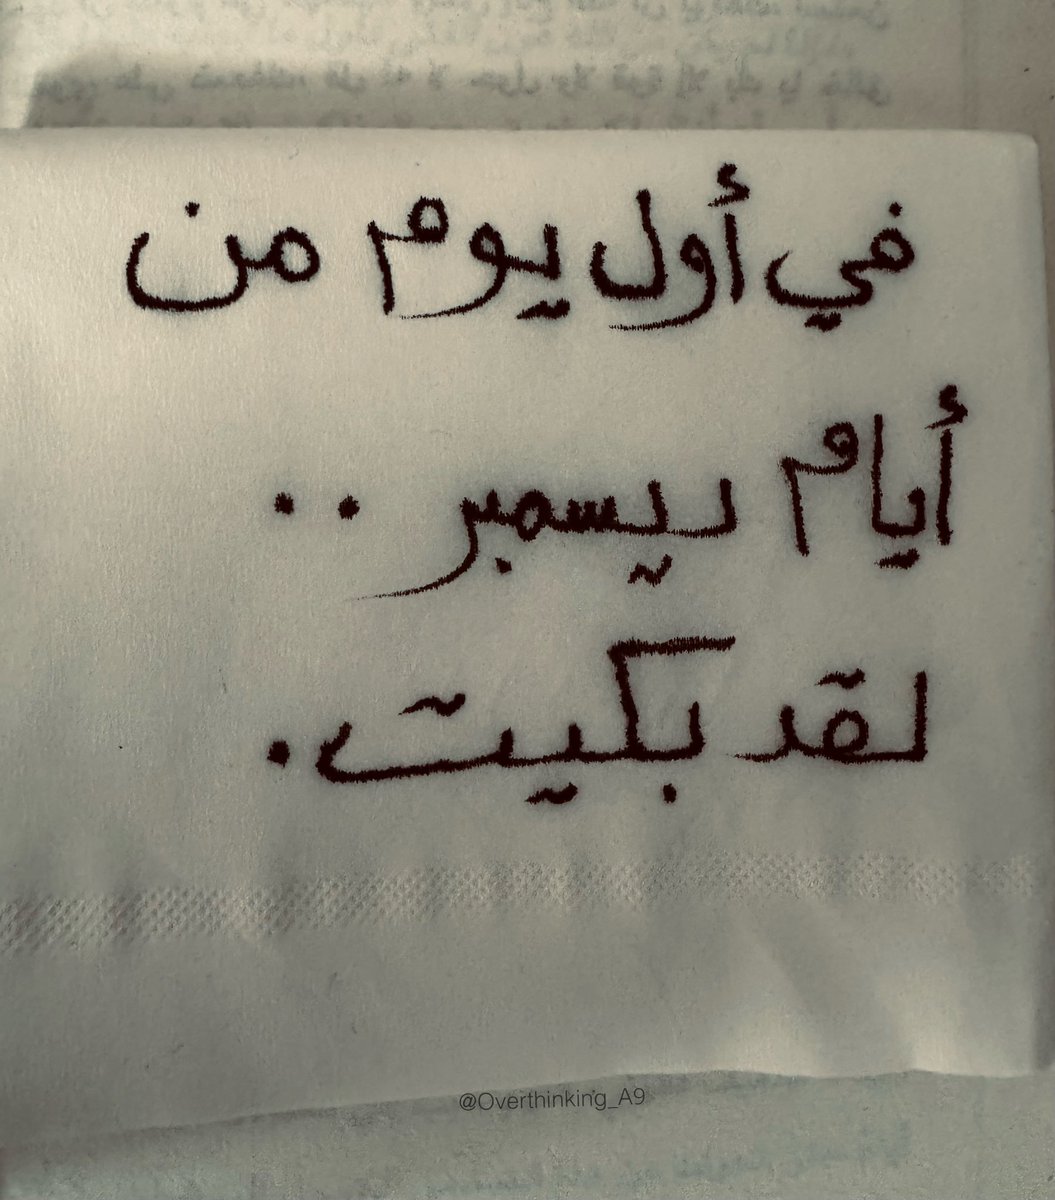 في أول يوم من
أيام ديسمبر ..
لقد بكيت.
@Overthinking_A9